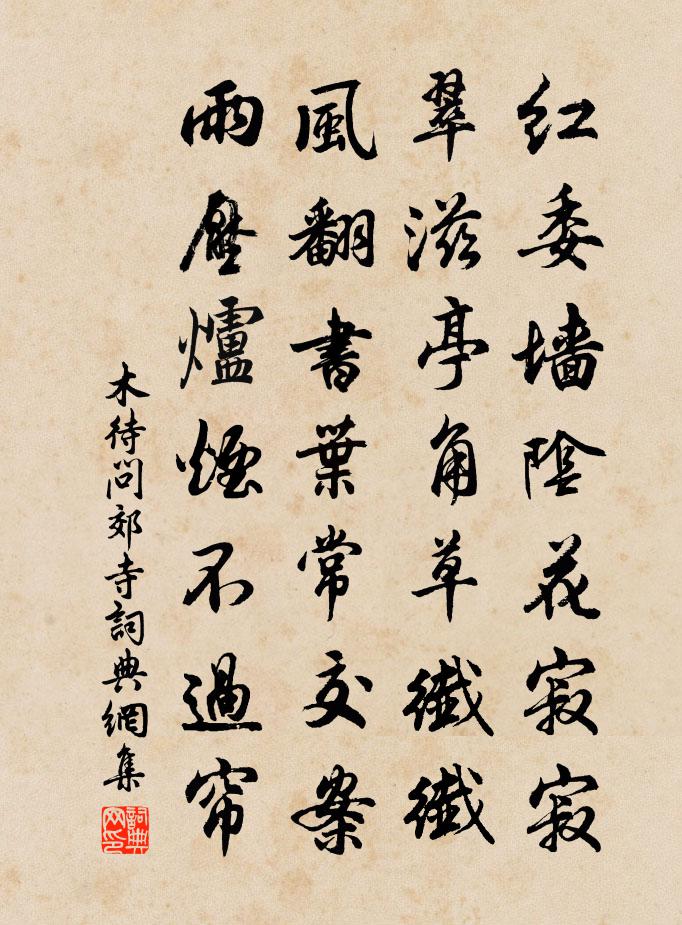 红委墙陰花寂寂
翠滋亭角草纖纖
風翻書葉常交案
雨壓爐煙不過帘
木待問郊寺詞典網集
詞典网印